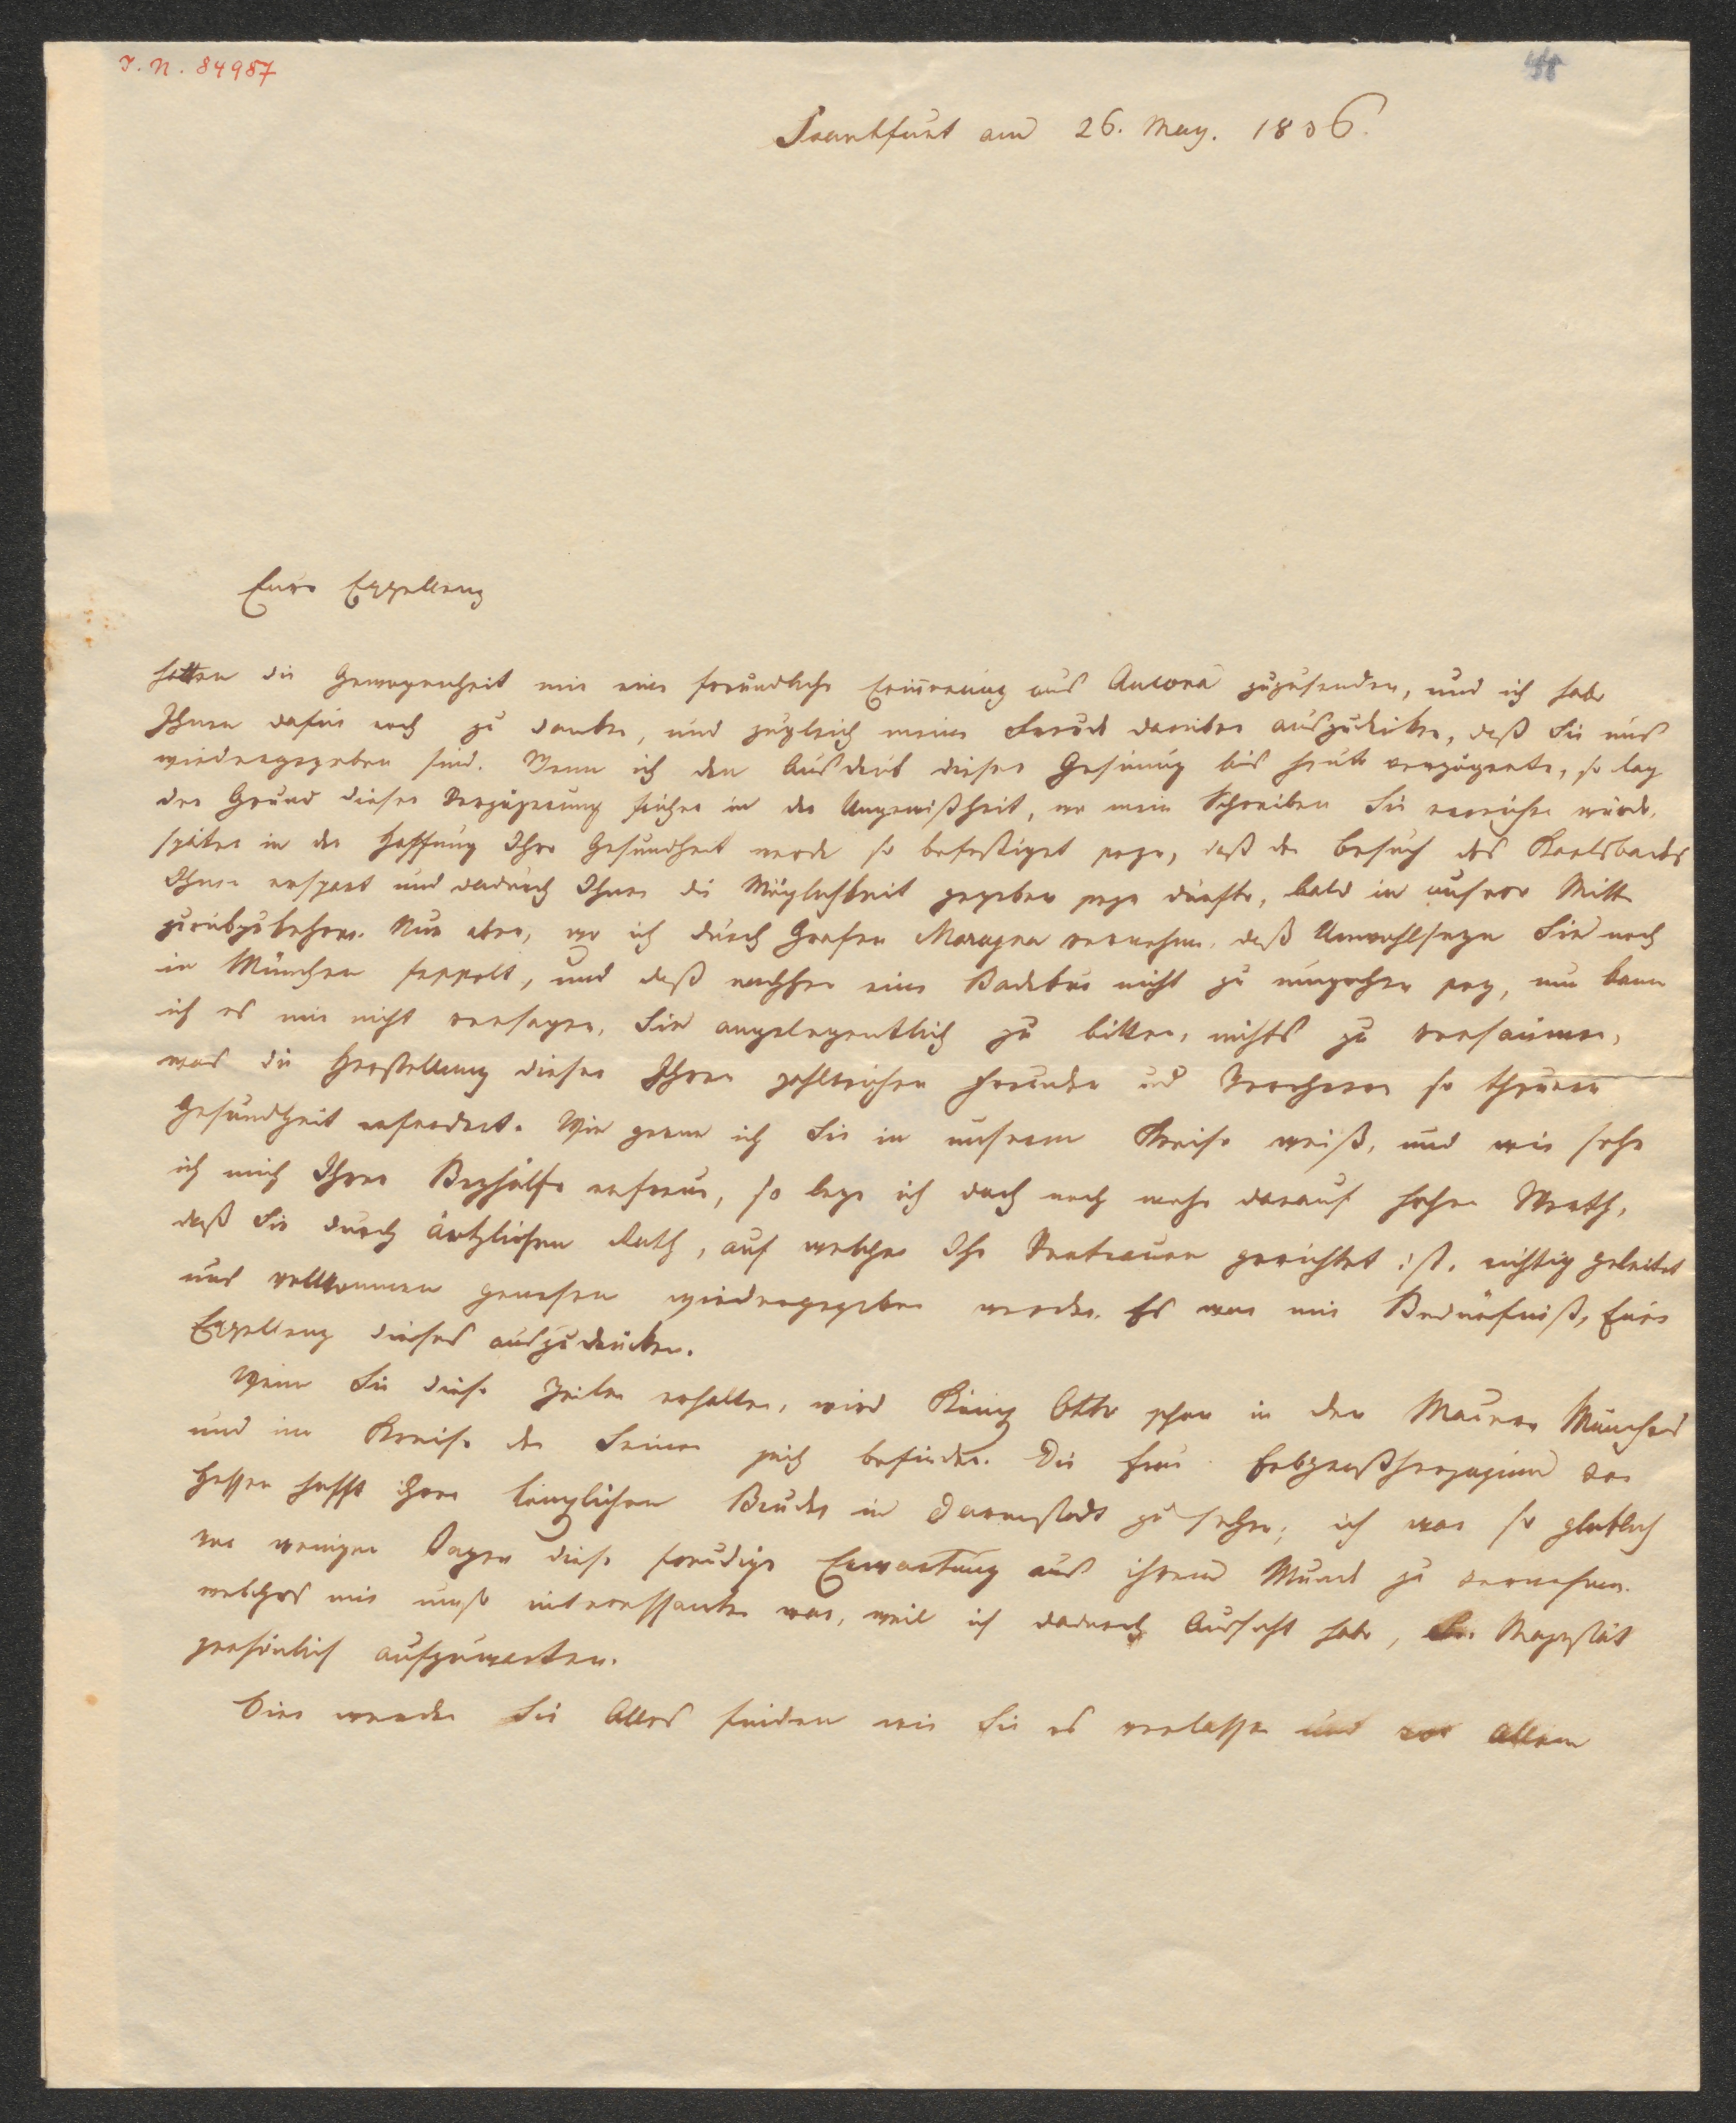 I. N. 84987
Frankfurt am 26. May. 1836.
Eure Exzellenz
hatten die Gewogenheit mir eine freundliche Erinnerung aus Ancona zuzusenden, und ich habe
Ihnen dafür noch zu danken, und zugleich meine Freude darüber auszudrüken, daß Sie uns
wiedergegeben sind. Wenn ich den Ausdruk dieser Gesinnung bis heute verzögerte, so lag
der Grund dieser Verzögerung früher in der Ungewißheit, wo mein Schreiben Sie erreichen würde,
später in der Hoffnung Ihre Gesundheit werde so befestiget seyn, daß der Besuch des Karlsbades
Ihnen erspart und dadurch Ihnen die Möglichkeit gegeben seyn dürfte, bald in unsere Mitte
zurükzukehren. Nun aber, wo ich durch Grafen vernehme, daß Unwohlseyn Sie noch
in München fesselt, und daß nachher eine Badekur nicht zu umgehen sey, nun kann
ich es mir nicht versagen, Sie angelegentlich zu bitten, nichts zu versäumen,
was die Herstellung dieser Ihren zahlreichen Freunden und Verehrern so theuren
Gesundheit erfordert. Wie gerne ich Sie in unserem Kreise weiß, und wie sehr
ich mich Ihrer Beyhülfe erfreue, so lege ich doch noch mehr darauf hohen Werth,
daß Sie durch ärtzlichen Rath, auf welchen Ihr Vertrauen gerichtet ist, richtig geleitet
uns vollkommen genesen wiedergegeben werden. Es war mir Bedürfniß, Eure
Exzellenz dieses auszudrücken.
Wenn Sie diese Zeilen erhalten, wird König Otto schon in den Mauern Münchens
und im Kreise der Seinen sich befinden. Die Frau Erbgroßherzoginn von
Hessen hofft ihren königlichen Bruder in Darmstadt zu sehen; ich war so glüklich
vor wenigen Tagen diese freudige Erwartung aus ihrem Munde zu vernehmen.
welches mir umso interessanter war, weil ich dadurch Aussicht habe, Sr. Majestät
persönlich aufzuwarten.
Hier werden Sie Alles finden wie Sie es verlassen und vor allem